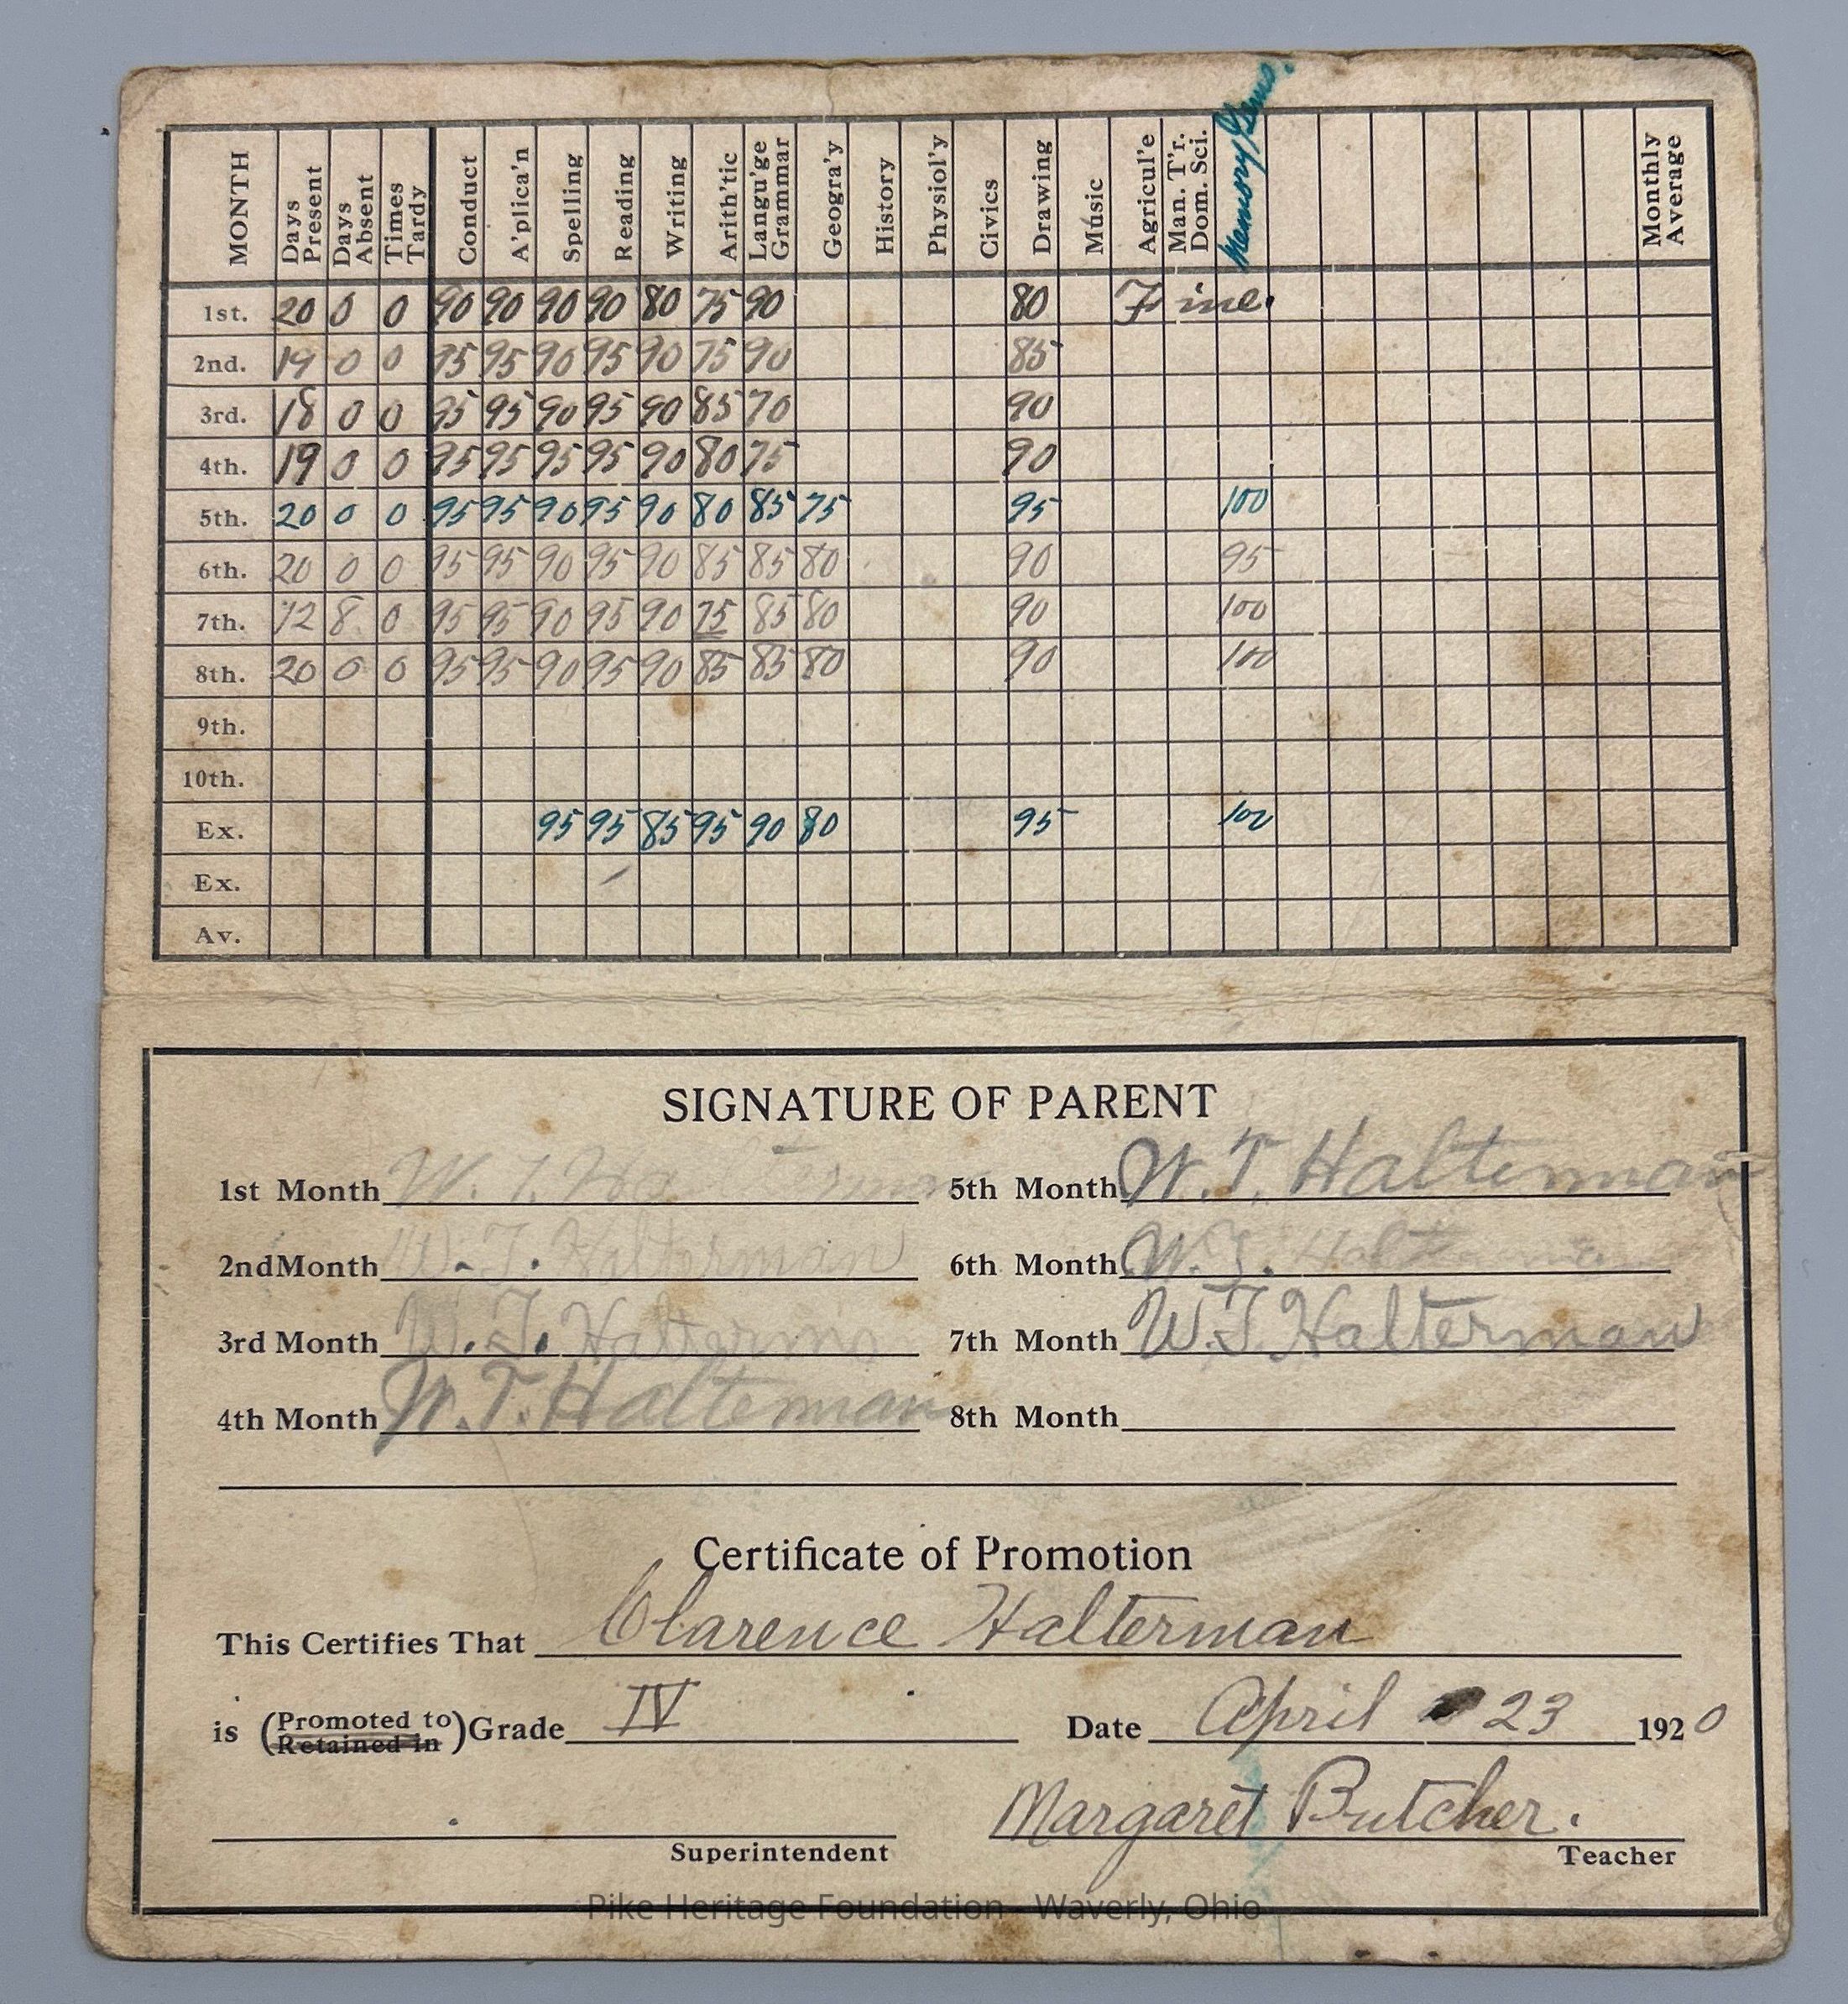 MONTH Days Present Days Absent Times Tardy Conduct A'plica'n Spelling Reading Writing Arith'tic Langu'ge Grammar Geogra'y History Physiol'y Civics Drawing Music Agricul'e Man. T'r. Dom. Sci. Memory Gems. Monthly Average
1st. 20 0 0 90 90 90 90 80 75 90 80 Fine.
2nd. 19 0 0 95 95 90 95 90 75 90 85
3rd. 18 0 0 95 95 90 95 90 85 70 90
4th. 19 0 0 95 95 95 95 90 80 75 90
5th. 20 0 0 95 95 90 95 90 80 85 75 95 100
6th. 20 0 0 95 95 90 95 90 85 85 80 90 95
7th. 12 8 0 95 95 90 95 90 75 85 80 90 100
8th. 20 0 0 95 95 90 95 90 85 85 80 90 100
9th.
10th.
Ex. 95 95 85 95 90 80 95 100
Ex.
Av.
SIGNATURE OF PARENT
1st Month W. T. Halterman 5th Month W. T. Halterman
2nd Month W. T. Halterman 6th Month W. T. Halterman
3rd Month W. T. 7th Month W. T. Halterman
4th Month W. T. Halterman 8th Month
Certificate of Promotion
This Certifies That Clarence Halterman
is (Promoted to Retained in) Grade IV Date April 23 1920
Margaret Butcher.
Superintendent Teacher
Pike Heritage Foundation - Waverly, Ohio